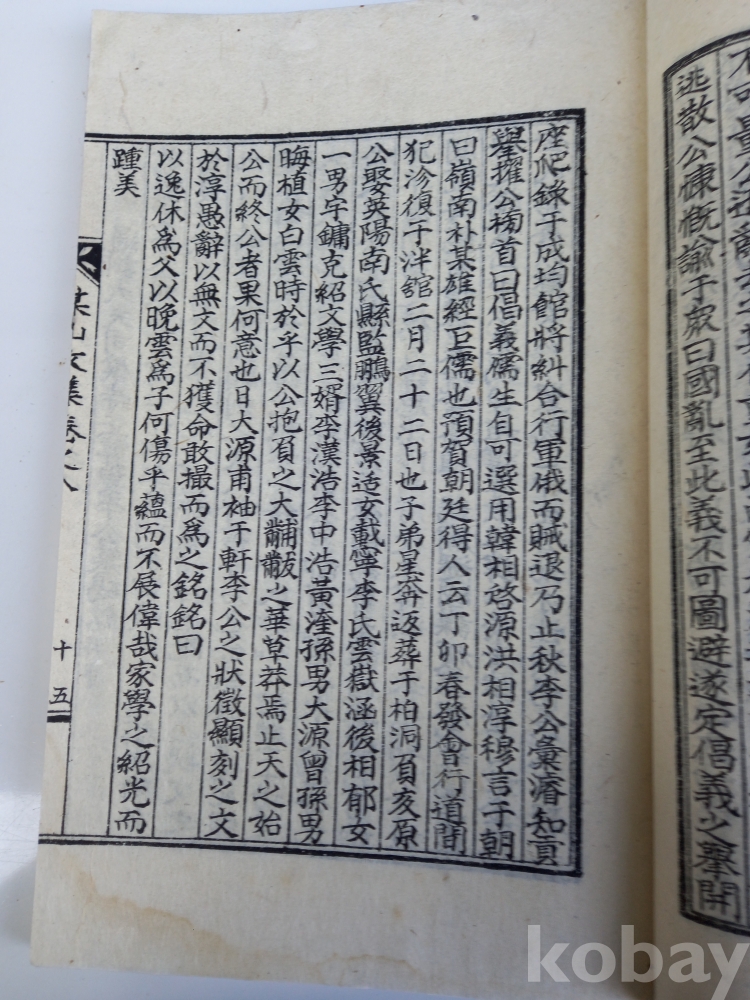 逃散公慷慨諭于衆曰國亂至此義不可圖避遂定倡義之擧開
座爬錄于成均館將糾合行軍俄而賊退乃止秋李公彙濬知貢
擧擢公榜首曰倡義儒生自可選用韓相啓源洪相淳穆言于朝
曰嶺南朴某雄經巨儒也預賀朝廷得人云丁卯春發會行道間
犯沴復于泮館二月二十二日也子弟星奔返葬于柏洞負亥原
公娶英陽南氏縣監鵬翼後景适女載寧李氏雲嶽涵後相郁女
一男宇鏞克紹文學三婿李漢浩李中浩黃溎孫男大源曾孫男
晦植女白雲時於乎以公抱負之大黼黻之華草莽焉止天之始
公而終公者果何意也日大源甫袖于軒李公之狀徵顯刻之文
於淳愚辭以無文而不獲命敢撮而爲之銘銘曰
以逸休爲父以晩雲爲子何傷乎蘊而不展偉哉家學之紹光而
踵美
山文集卷之八
十五
kobay